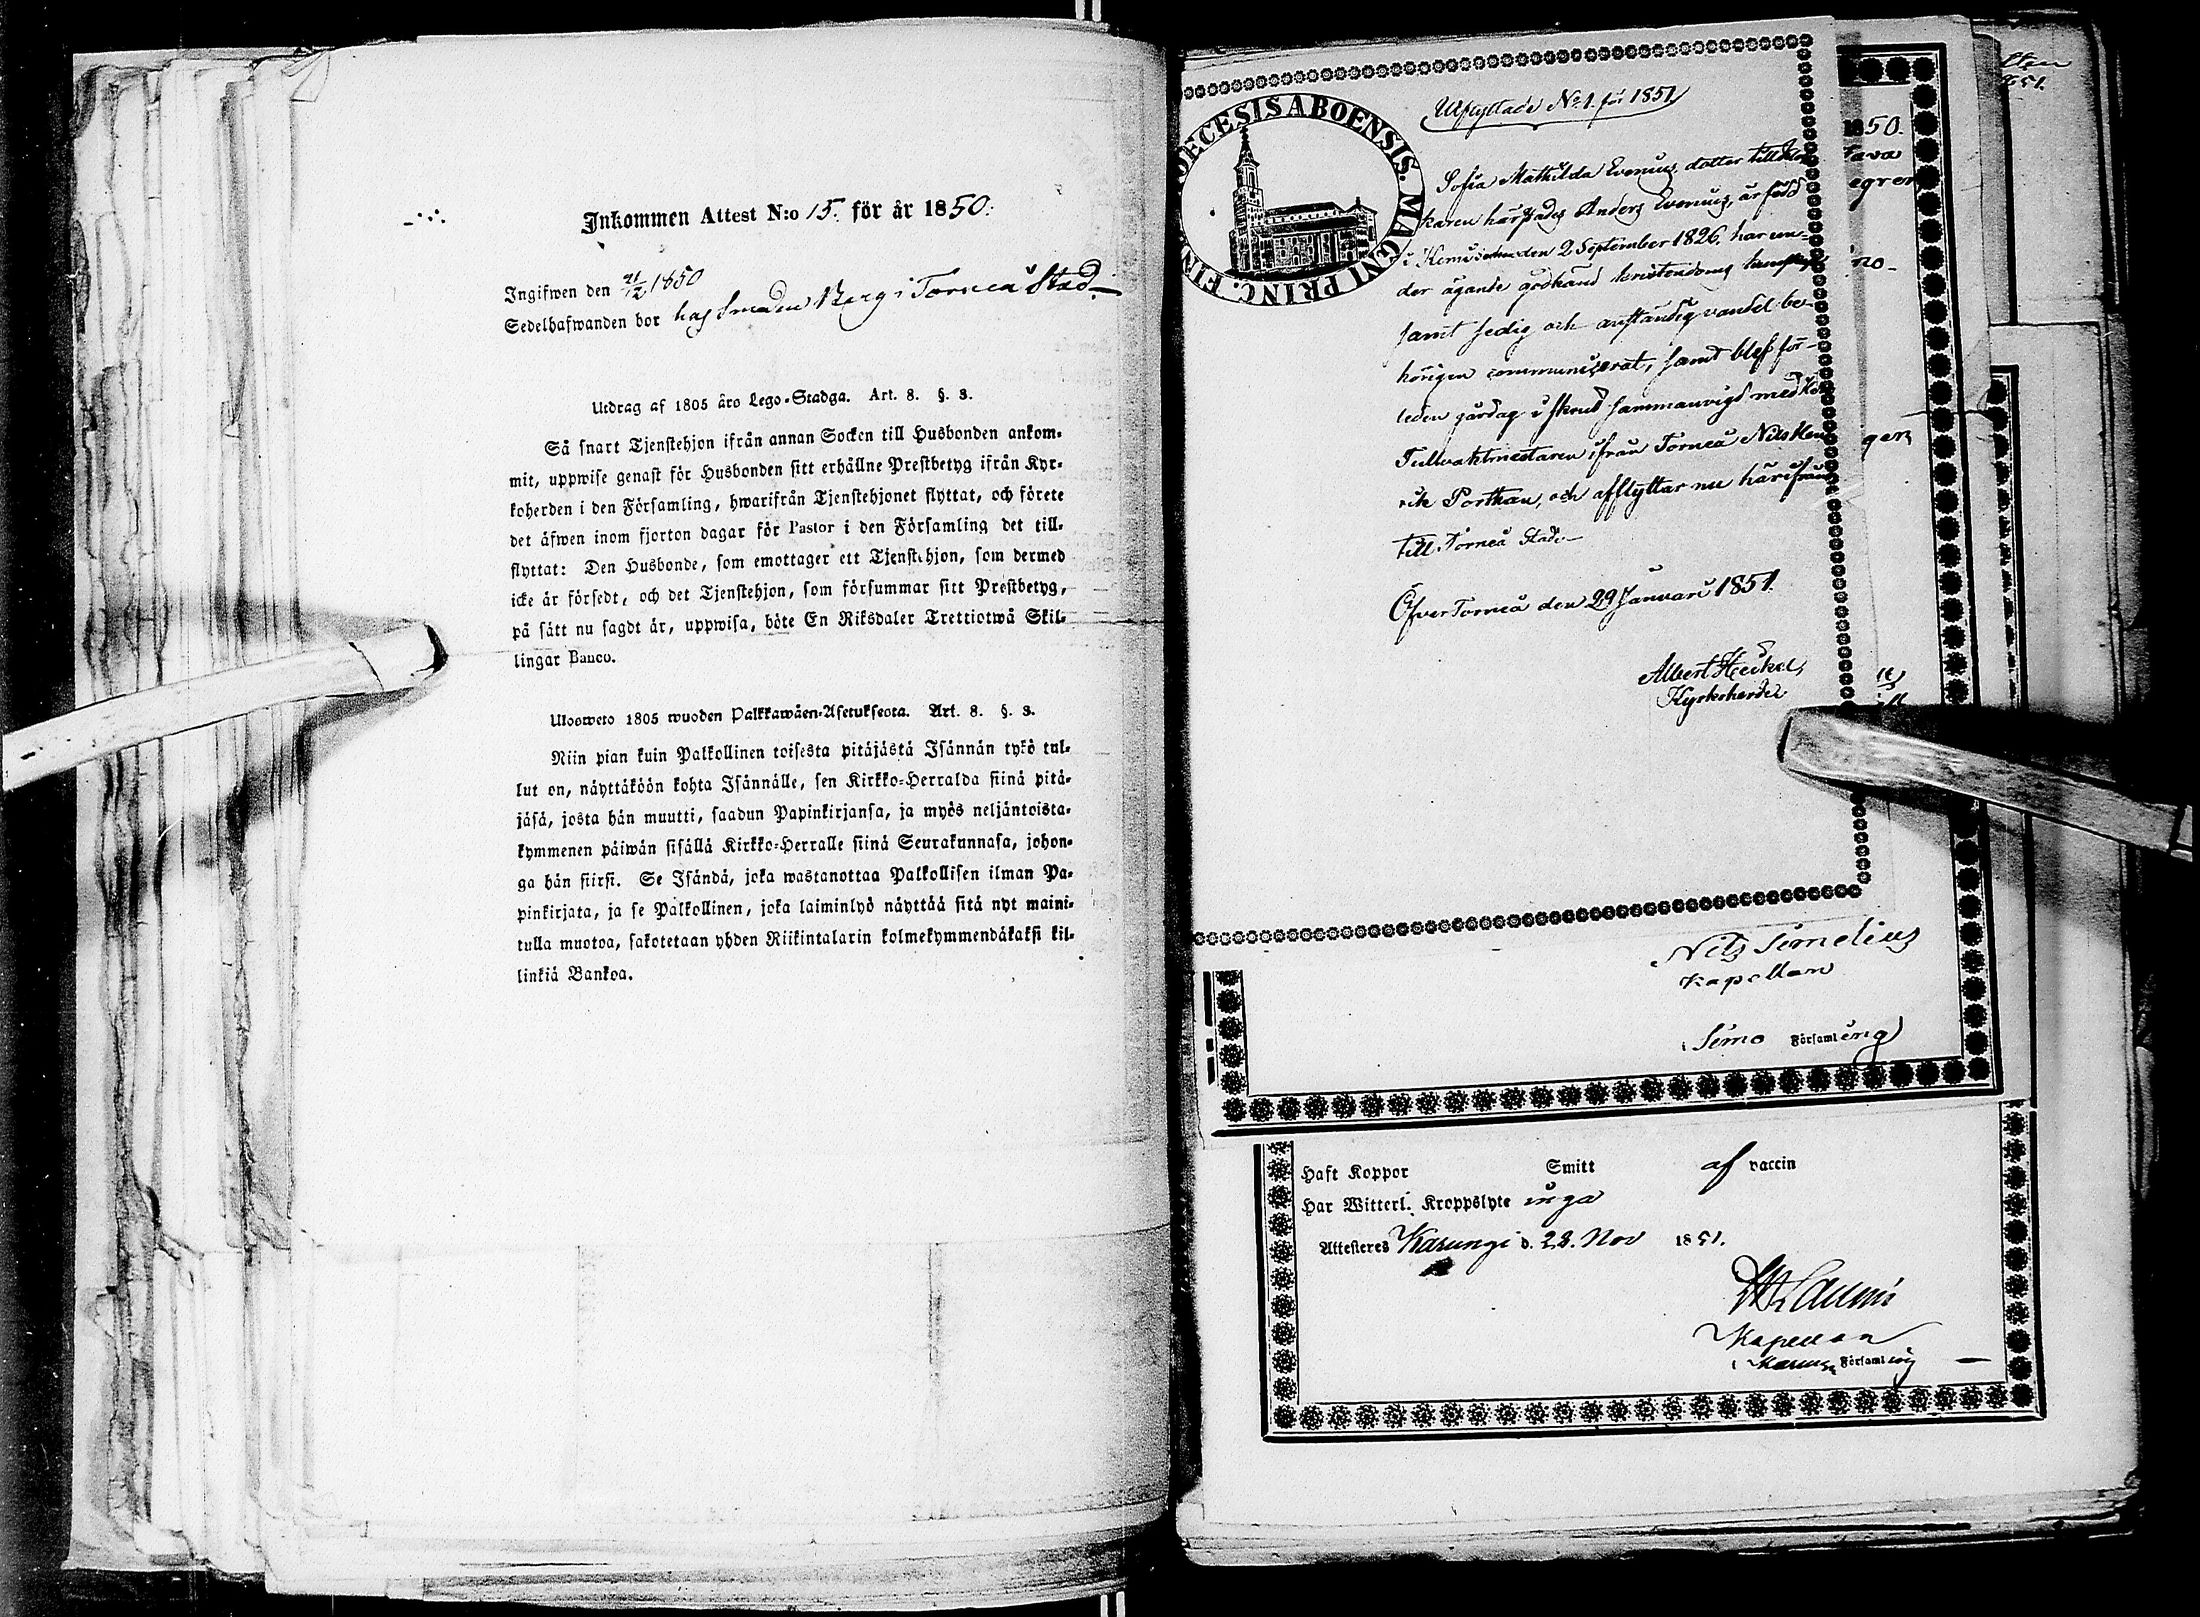 Inkommen Attest N:o 15. för år 1850.
Ingifwen den 21/12 1850
Sedelhafwanden bor hos Smeden Berg i Torneå Stad.
Utdrag af 1805 års Lego-Stadga. Art. 8. §. 3.
Så snart Tjenstehjon ifrån annan Socken till Husbonden ankom-
mit, uppwise genast för Husbonden sitt erhållne Prestbetyg ifrån Kyr-
koherden i den Församling, hwarifrån Tjenstehjonet flyttat, och förete
det äfwen inom fjorton dagar för Pastor i den Församling det till-
flyttat: Den Husbonde, som emottager ett Tjenstehjon, som dermed
icke är försedt, och det Tjenstehjon, som försummar sitt Prestbetyg,
på sätt nu sagdt är, uppwisa, böte En Riksdaler Trettiotwå Skil-
lingar Banco.
Ulosweto 1805 wuoden Palkkawäen-Asetuksesta. Art. 8. §. 3.
Niin pian kuin Palkollinen toisesta pitäjästä Isännän tykö tul-
lut on, näyttäköön kohta Isännälle, sen Kirkko-Herralda siinä pitä-
jäsä, josta hän muutti, saadun Papinkirjansa, ja myös neljäntoista-
kymmenen päiwän sisällä Kirkko-Herralle siinä Seurakunnasa, johon-
ga hän siirsi. Se Isändä, joka wastanottaa Palkollisen ilman Pa-
pinkirjata, ja se Palkollinen, joka laiminlyö näyttää sitä nyt maini-
tulla muotoa, sakotetaan yhden Riikintalarin kolmekymmendäkaksi kil-
linkiä Bankoa.
OECESIS ABOENSIS. MAGNI PRINC. FIN
Utflyttade No. 1. för 1851
Sofia Mathilda Evenius, dotter till Klok
karen härstädes Anders Evenius, är född
i Kemi den 2 September 1826, har un-
der ägande godkänd kristendoms kunskap
samt sedig och anständig vandel be-
hörigen communicerat, samt blef för-
leden gårdag i skrud sammanvigd med
Tullvaktmästaren ifrån Torneå Nils Hen
rik Porthan, och afflyttar nu härifrån
till Torneå Stad.
ÖfverTorneå den 29 Januari 1851.
Albert Heikel,
Kyrkoherde
1850.
Nils Simelius
Kapellan
i Simo Församling
Haft Koppor Smitt af vaccin
Har Witterl. Kroppslyte inga
Attesteres Karungi d. 28. Nov 1851.
Kapellan
i Karungi Församling